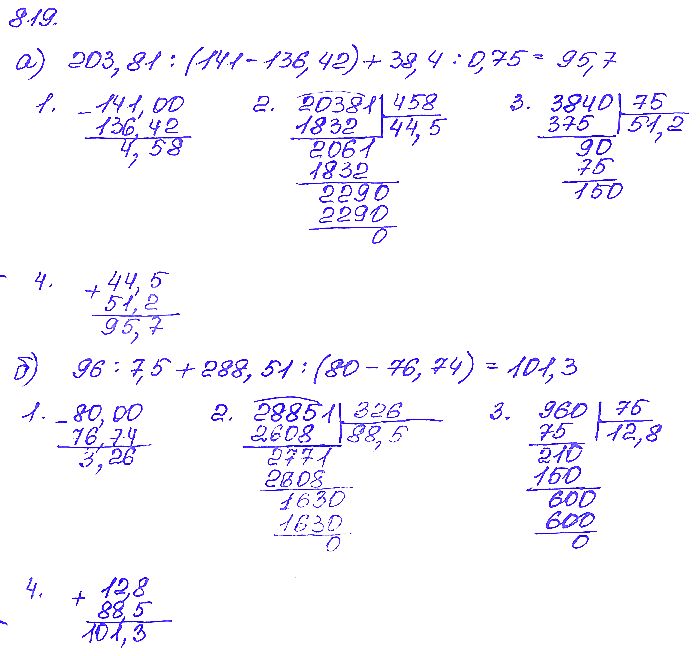 819.
а) 203,81 : (141 - 136,42) + 38,4 : 0,75 = 95,7
1. - 141,00
136,42
4,58
2. 20381 | 458
1832 44,5
2061
1832
2290
2290
0
3. 3840 | 75
375 51,2
90
75
150
4. + 44,5
51,2
95,7
б) 96 : 7,5 + 288,51 : (80 - 76,74) = 101,3
1. - 80,00
76,74
3,26
2. 28851 | 326
2608 88,5
2771
2608
1630
1630
0
3. 960 | 75
75 12,8
210
150
600
600
0
4. + 12,8
88,5
101,3